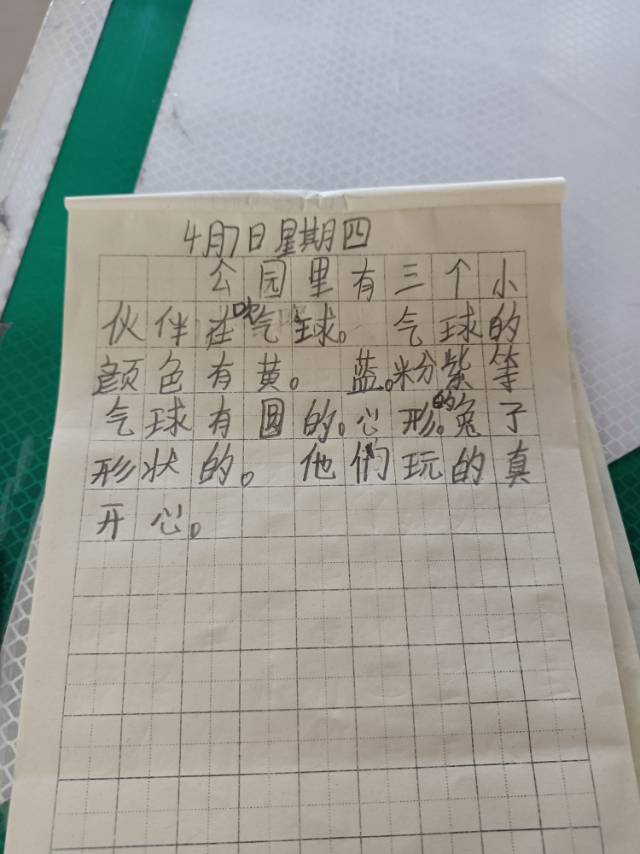 4月7日星期四
公园里有三个小
伙伴在吹气球。气球的
颜色有黄。蓝。粉紫等
气球有圆的。心形的。兔子
形状的。他们玩的真
开心。